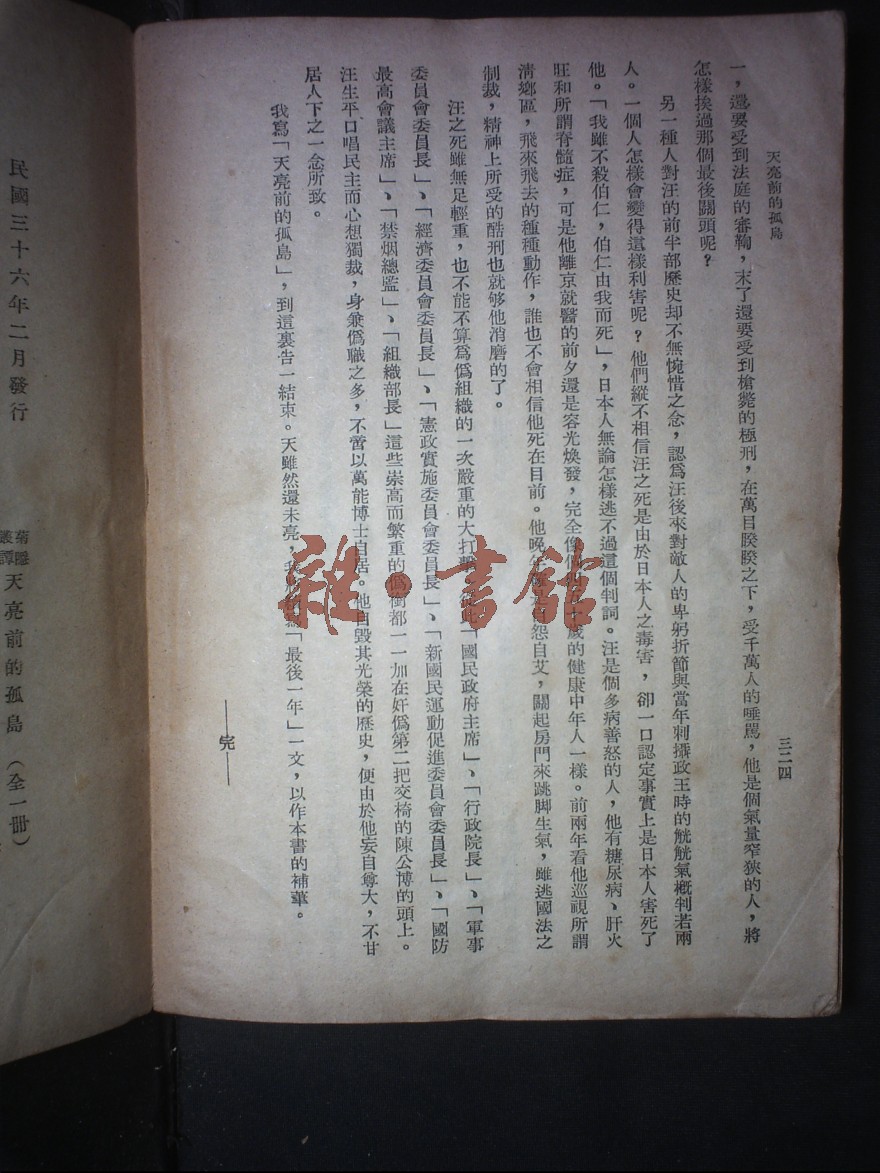 天亮前的孤島
三二四
一，還要受到法庭的審鞫，末了還要受到槍斃的極刑，在萬目睽睽之下，受千萬人的唾罵，他是個氣量窄狹的人，將
怎樣挨過那個最後關頭呢？
另一種人對汪的前半部歷史却不無惋惜之念，認爲汪後來對敵人的卑躬折節與當年刺攝政王時的觥觥氣概判若兩
人。一個人怎樣會變得這樣利害呢？他們縱不相信汪之死是由於日本人之毒害，卻一口認定事實上是日本人害死了
他。「我雖不殺伯仁，伯仁由我而死」，日本人無論怎樣逃不過這個判詞。汪是個多病善怒的人，他有糖尿病、肝火
旺和所謂脊髓症，可是他離京就醫的前夕還是容光煥發，完全像個四五十歲的健康中年人一樣。前兩年看他巡視所謂
淸鄉區，飛來飛去的種種動作，誰也不會相信他死在目前。他晚年怨自艾，關起房門來跳脚生氣，雖逃國法之
制裁，精神上所受的酷刑也就够他消磨的了。
汪之死雖無足輕重，也不能不算爲僞組織的一次嚴重的大打擊，「國民政府主席」、「行政院長」、「軍事
委員會委員長」、「經濟委員會委員長」、「憲政實施委員會委員長」、「新國民運動促進委員會委員長」、「國防
最高會議主席」、「禁烟總監」、「組織部長」這些崇高而繁重的僞銜都一一加在奸僞第二把交椅的陳公博的頭上。
汪生平口唱民主而心想獨裁，身兼僞職之多，不啻以萬能博士自居。他自毀其光榮的歷史，便由於他妄自尊大，不甘
居人下之一念所致。
我寫「天亮前的孤島」，到這裏告一結束。天雖然還未亮，我「最後一年」一文，以作本書的補華。
——完——
雜·書館
菊隱叢譚 天亮前的孤島（全一冊）
民國三十六年二月發行